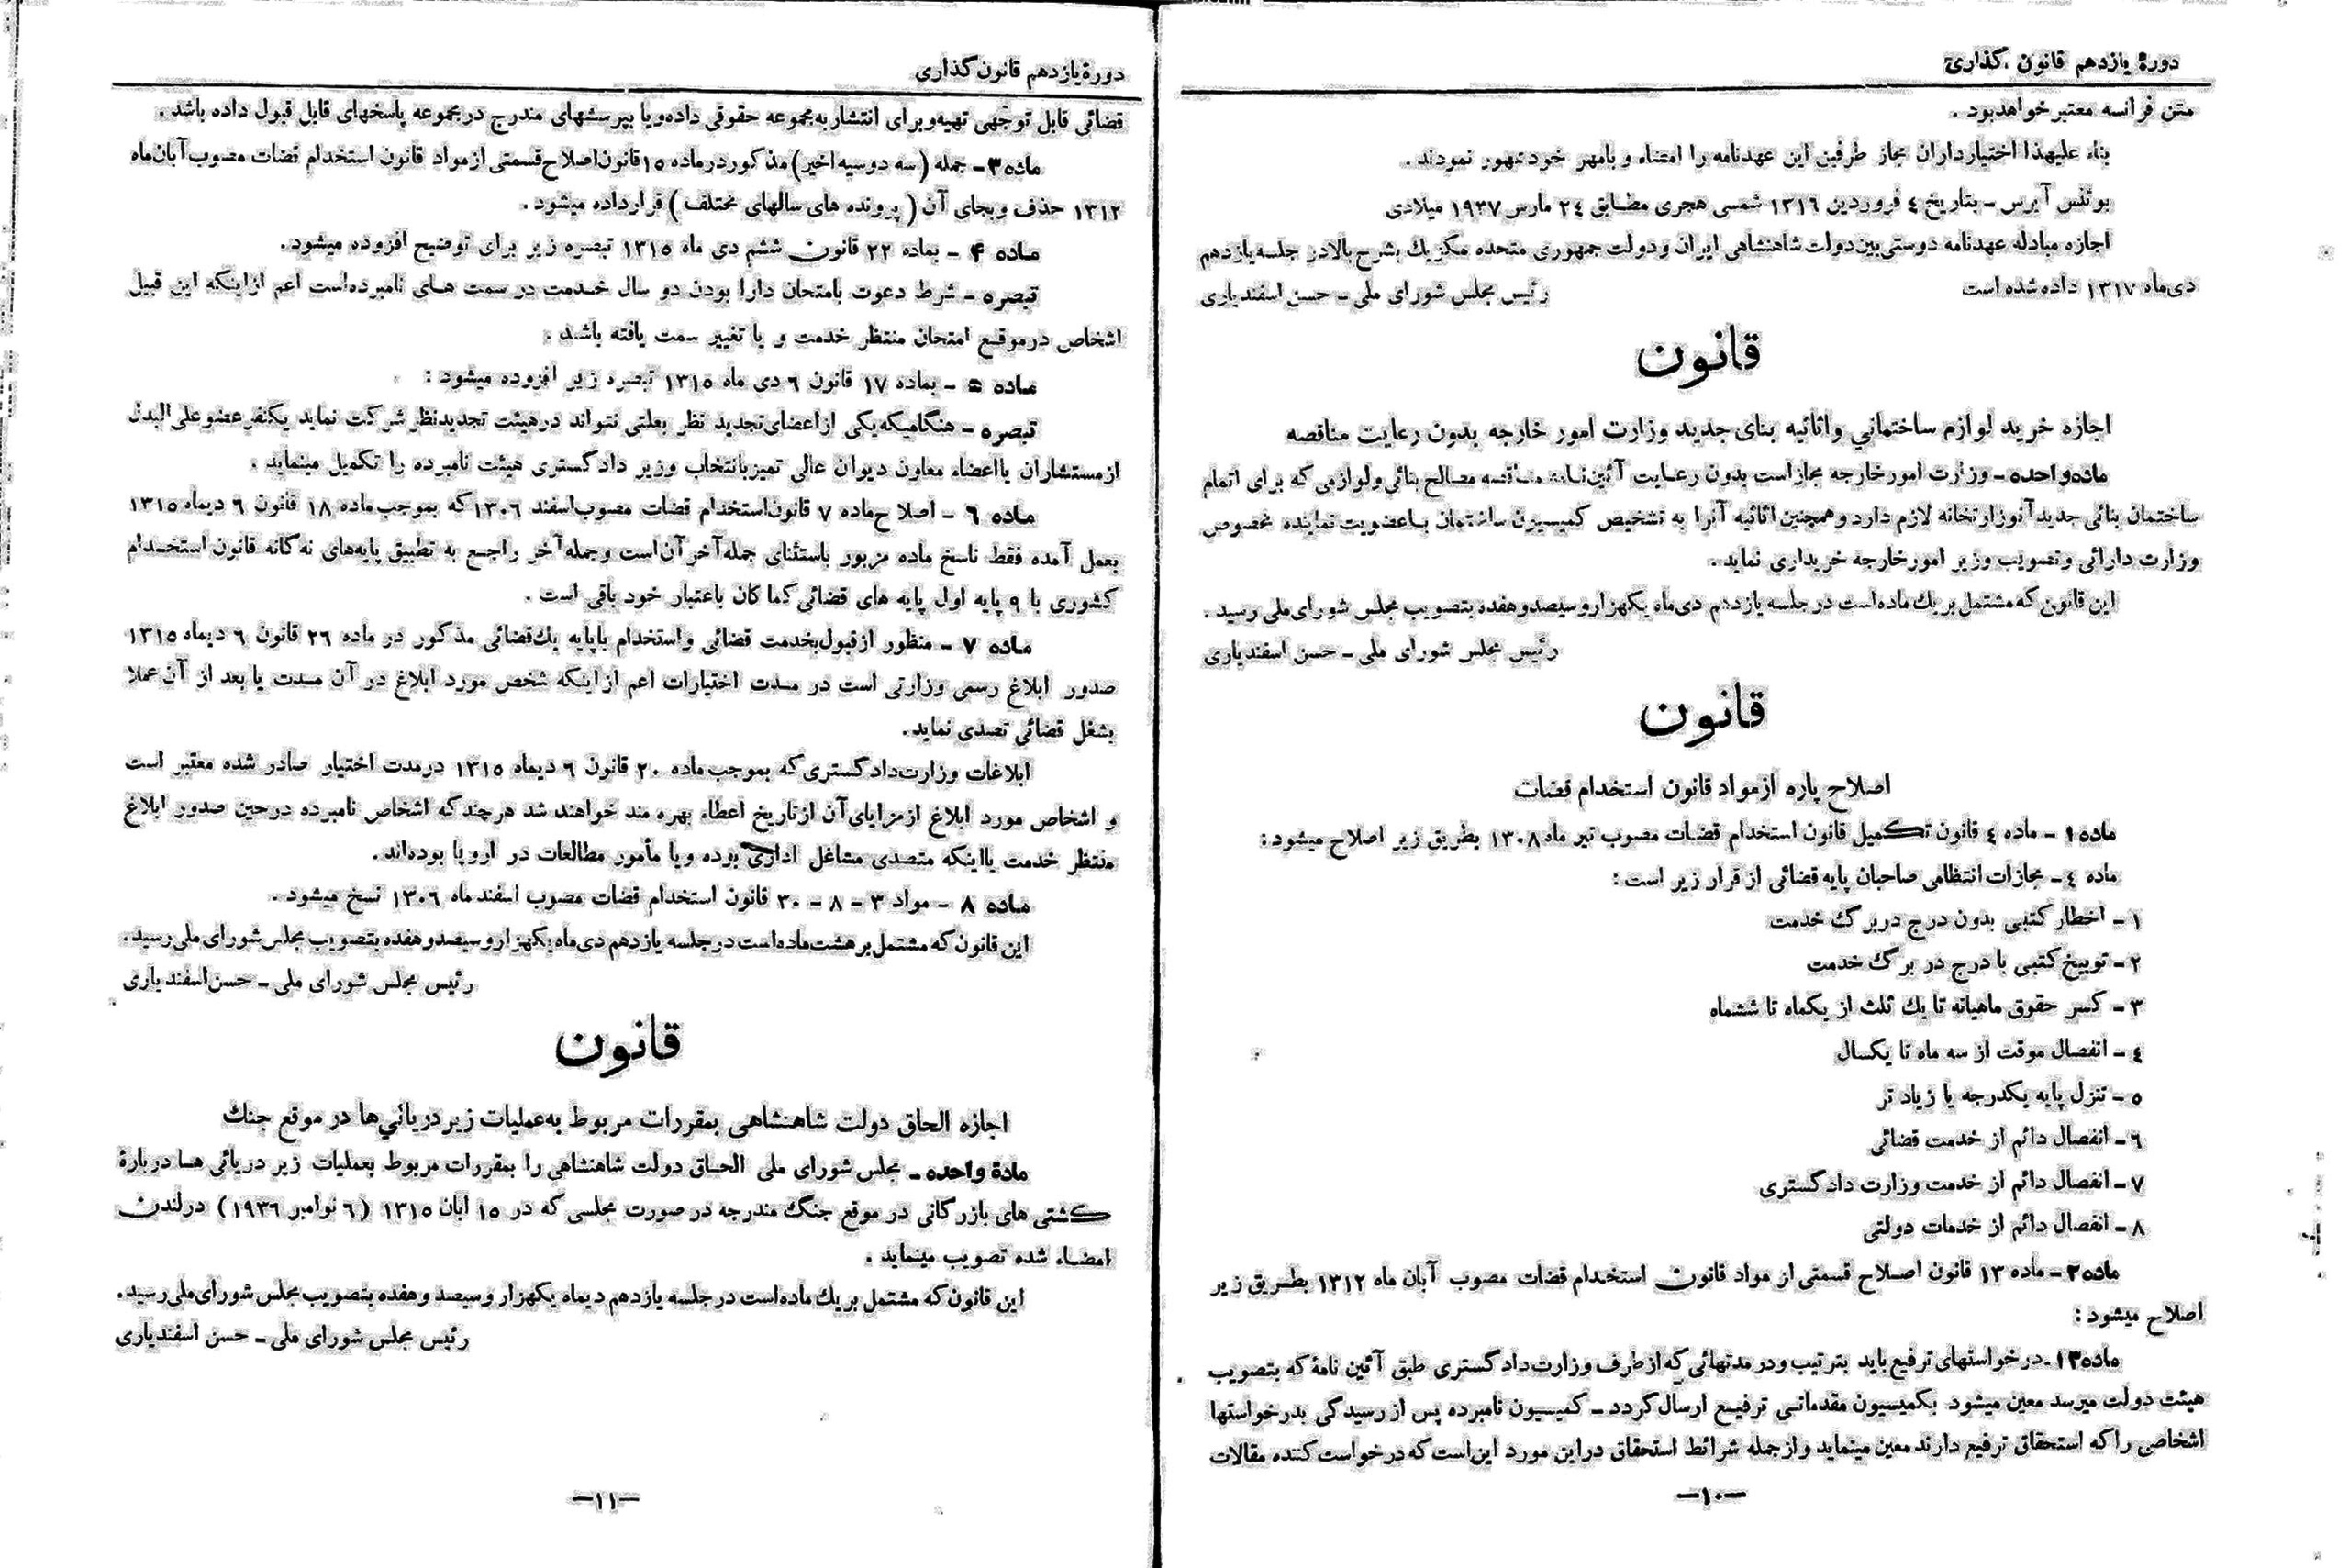 دورهٔ یازدهم قانون گذاری
متن فرانسه معتبر خواهد بود .
بناء علیهذا اختیارداران مجاز طرفین این عهدنامه را امضاء و بامهر خود ممهور نمودند .
بوئنس آیرس ـ بتاریخ ٤ فروردین ۱۳۱٦ شمسی هجری مطابق ۲٤ مارس ۱۹۳۷ میلادی
اجازه مبادله عهدنامه دوستی بین دولت شاهنشاهی ایران و دولت جمهوری متحده مکزیك بشرح بالا در جلسه یازدهم
دی‌ماه ۱۳۱۷ داده شده است
رئیس مجلس شورای ملی ـ حسن اسفندیاری
قانون
اجازه خرید لوازم ساختمانی و اثاثیه بنای جدید وزارت امور خارجه بدون رعایت مناقصه
ماده واحده ـ وزارت امور خارجه مجاز است بدون رعایت آئین‌نامه مناقصه مصالح بنائی و لوازمی که برای اتمام
ساختمان بنائی جدید آنوزارتخانه لازم دارد و همچنین اثاثیه آنرا به تشخیص کمیسیون ساختمان با عضویت نماینده مخصوص
وزارت دارائی و تصویب وزیر امور خارجه خریداری نماید .
این قانون که مشتمل بر یك ماده است در جلسه یازدهم دی‌ماه یکهزار و سیصد و هفده بتصویب مجلس شورای ملی رسید .
رئیس مجلس شورای ملی ـ حسن اسفندیاری
قانون
اصلاح پاره از مواد قانون استخدام قضات
ماده ۱ ـ ماده ٤ قانون تکمیل قانون استخدام قضات مصوب تیر ماه ۱۳۰۸ بطریق زیر اصلاح میشود :
ماده ٤ ـ مجازات انتظامی صاحبان پایه قضائی از قرار زیر است :
۱ ـ اخطار کتبی بدون درج در برگ خدمت
۲ ـ توبیخ کتبی با درج در برگ خدمت
۳ ـ کسر حقوق ماهیانه تا یك ثلث از یکماه تا ششماه
٤ ـ انفصال موقت از سه ماه تا یکسال
٥ ـ تنزل پایه یکدرجه یا زیاد تر
٦ ـ انفصال دائم از خدمت قضائی
۷ ـ انفصال دائم از خدمت وزارت دادگستری
۸ ـ انفصال دائم از خدمات دولتی
ماده ۲ ـ ماده ۱۳ قانون اصلاح قسمتی از مواد قانون استخدام قضات مصوب آبان ماه ۱۳۱۲ بطریق زیر
اصلاح میشود :
ماده ۱۳ ـ درخواستهای ترفیع باید بترتیب و در مدتهائی که از طرف وزارت دادگستری طبق آئین نامهٔ که بتصویب
هیئت دولت میرسد معین میشود بکمیسیون مقدماتی ترفیع ارسال گردد ـ کمیسیون نامبرده پس از رسیدگی بدرخواستها
اشخاصی را که استحقاق ترفیع دارند معین مینماید و از جمله شرائط استحقاق در این مورد این است که درخواست کننده مقالات
ـ ۱۰ ـ
دورهٔ یازدهم قانون گذاری
قضائی قابل توجهی تهیه و برای انتشار به مجموعه حقوقی داده و یا بپرسشهای مندرج در مجموعه پاسخهای قابل قبول داده باشد .
ماده ۳ ـ جمله ( سه دوسیه اخیر ) مذکور در ماده ۱٥ قانون اصلاح قسمتی از مواد قانون استخدام قضات مصوب آبان ماه
۱۳۱۲ حذف و بجای آن ( پرونده های سالهای مختلف ) قرار داده میشود .
ماده ۴ ـ بماده ۲۲ قانون ششم دی ماه ۱۳۱٥ تبصره زیر برای توضیح افزوده میشود .
تبصره ـ شرط دعوت بامتحان دارا بودن دو سال خدمت در سمت های نامبرده است اعم از اینکه این قبیل
اشخاص در موقع امتحان منتظر خدمت و یا تغییر سمت یافته باشند .
ماده ۵ ـ بماده ۱۷ قانون ٦ دی ماه ۱۳۱٥ تبصره زیر افزوده میشود :
تبصره ـ هنگامیکه یکی از اعضای تجدید نظر بعلتی نتواند در هیئت تجدید نظر شرکت نماید یکنفر عضو علی البدل
از مستشاران یا اعضاء معاون دیوان عالی تمیز بانتخاب وزیر دادگستری هیئت نامبرده را تکمیل مینماید .
ماده ٦ ـ اصلاح ماده ۷ قانون استخدام قضات مصوب اسفند ۱۳۰٦ که بموجب ماده ۱۸ قانون ٦ دیماه ۱۳۱٥
بعمل آمده فقط ناسخ ماده مزبور باستثنای جمله آخر آن است و جمله آخر راجع به تطبیق پایه‌های نه گانه قانون استخدام
کشوری با ۹ پایه اول پایه های قضائی کما کان باعتبار خود باقی است .
ماده ۷ ـ منظور از قبول بخدمت قضائی و استخدام با پایه یك قضائی مذکور در ماده ۲٦ قانون ٦ دیماه ۱۳۱٥
صدور ابلاغ رسمی وزارتی است در مدت اختیارات اعم از اینکه شخص مورد ابلاغ در آن مدت یا بعد از آن عملا
بشغل قضائی تصدی نماید .
ابلاغات وزارت دادگستری که بموجب ماده ۲۰ قانون ٦ دیماه ۱۳۱٥ در مدت اختیار صادر شده معتبر است
و اشخاص مورد ابلاغ از مزایای آن از تاریخ اعطاء بهره مند خواهند شد هر چند که اشخاص نامبرده در حین صدور ابلاغ
منتظر خدمت یا اینکه متصدی مشاغل اداری بوده و یا مأمور مطالعات در اروپا بوده‌اند .
ماده ۸ ـ مواد ۳ ـ ۸ ـ ۳۰ قانون استخدام قضات مصوب اسفند ماه ۱۳۰٦ نسخ میشود .
این قانون که مشتمل بر هشت ماده است در جلسه یازدهم دی‌ماه یکهزار و سیصد و هفده بتصویب مجلس شورای ملی رسید .
رئیس مجلس شورای ملی ـ حسن اسفندیاری
قانون
اجازه الحاق دولت شاهنشاهی بمقررات مربوط به عملیات زیر دریائی‌ها در موقع جنك
مادهٔ واحده ـ مجلس شورای ملی الحاق دولت شاهنشاهی را بمقررات مربوط بعملیات زیر دریائی ها دربارهٔ
کشتی های بازرگانی در موقع جنگ مندرجه در صورت مجلسی که در ۱٥ ابان ۱۳۱٥ ( ٦ نوامبر ۱۹۳٦ ) در لندن
امضاء شده تصویب مینماید .
این قانون که مشتمل بر یك ماده است در جلسه یازدهم دیماه یکهزار و سیصد و هفده بتصویب مجلس شورای ملی رسید .
رئیس مجلس شورای ملی ـ حسن اسفندیاری
ـ ۱۱ ـ